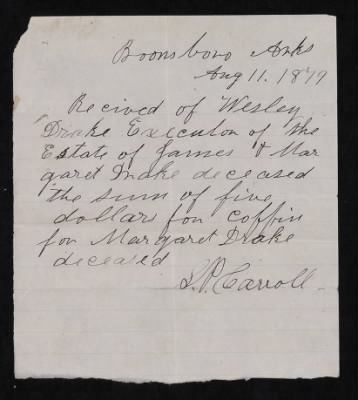 Boonsboro Arks
Aug 11. 1879
Recived of Wesley
Drake Executor of the
Estate of James & Mar
garet Drake deceased
the sum of five
dollars for coffin
for Margaret Drake
deceased
L. P. Carroll